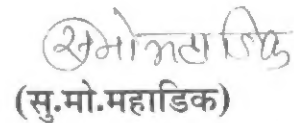 सुमोमहाडिक
(सु.मो.महाडिक)